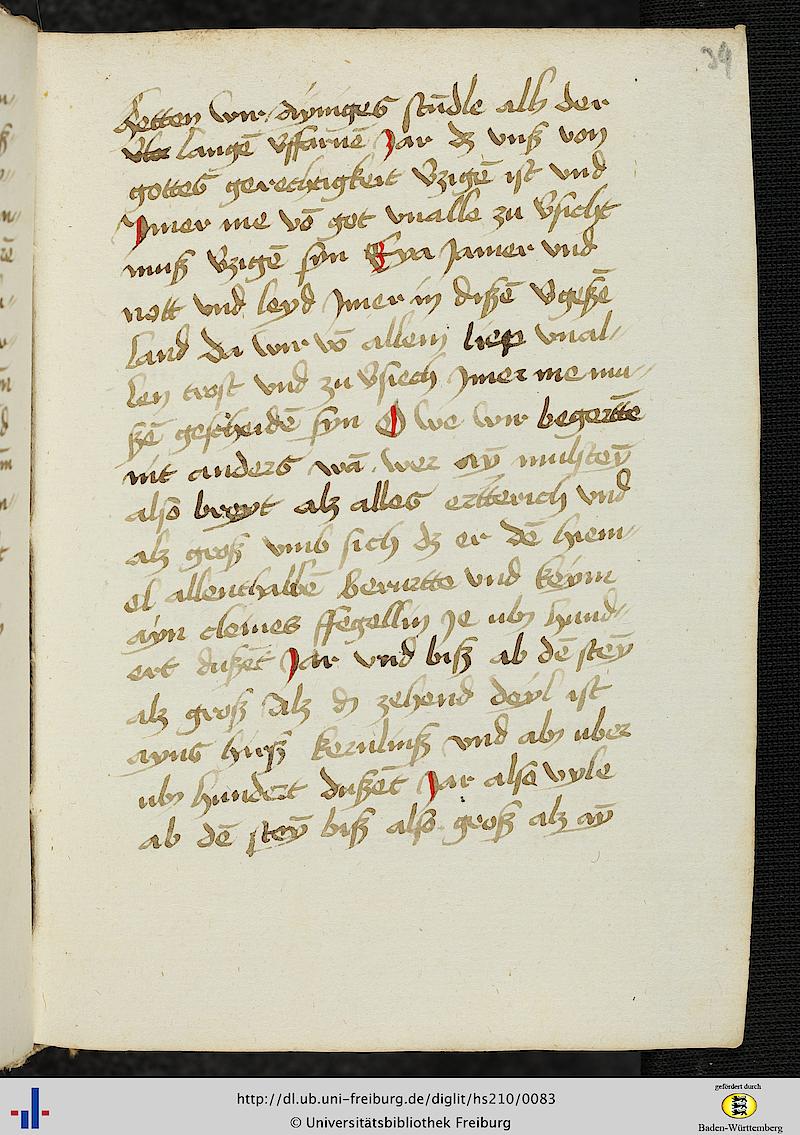 39
hetten wir ayniges stūdle alß der
langē vffarnē Jar dz vnß von
gottes gerechtigkeit vzigē ist vnd
Jmer me vō got vnalle zu vsicht
muß vzigē syn Eya Jamer vnd
nott vnd leyd Jmer in dißē vgeßē
land da wir vō allem liep vnal-
len trost vnd zu vsiech Jmer me mu-
ßē gescheidē syn O we wir begertte
nit anders wā wer aȳ mulsteȳ
also breyt alz alles ertterich vnd
alz groß vmb sich dz er dē hiem-
el allenthalbē berurtte vnd keym
ayn cleines ffegellin Je ubr hund-
ert dußēt Jar vnd biß ab dē steȳ
alz groß alz dz zehend deyl ist
ayns hirß kernliniß vnd abr uber
ubr hundert dußēt Jar also vyle
ab dē steȳ biß also groß alz aȳ
http://dl.ub.uni-freiburg.de/diglit/hs210/0083
© Universitätsbibliothek Freiburg
gefördert durch
Baden-Württemberg